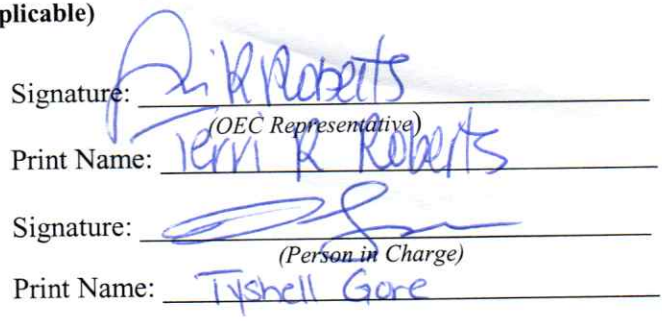 plicable)
Signature: R Roberts
(OEC Representative)
Print Name: Terri R Roberts
Signature:
(Person in Charge)
Print Name: Tyshell Gore